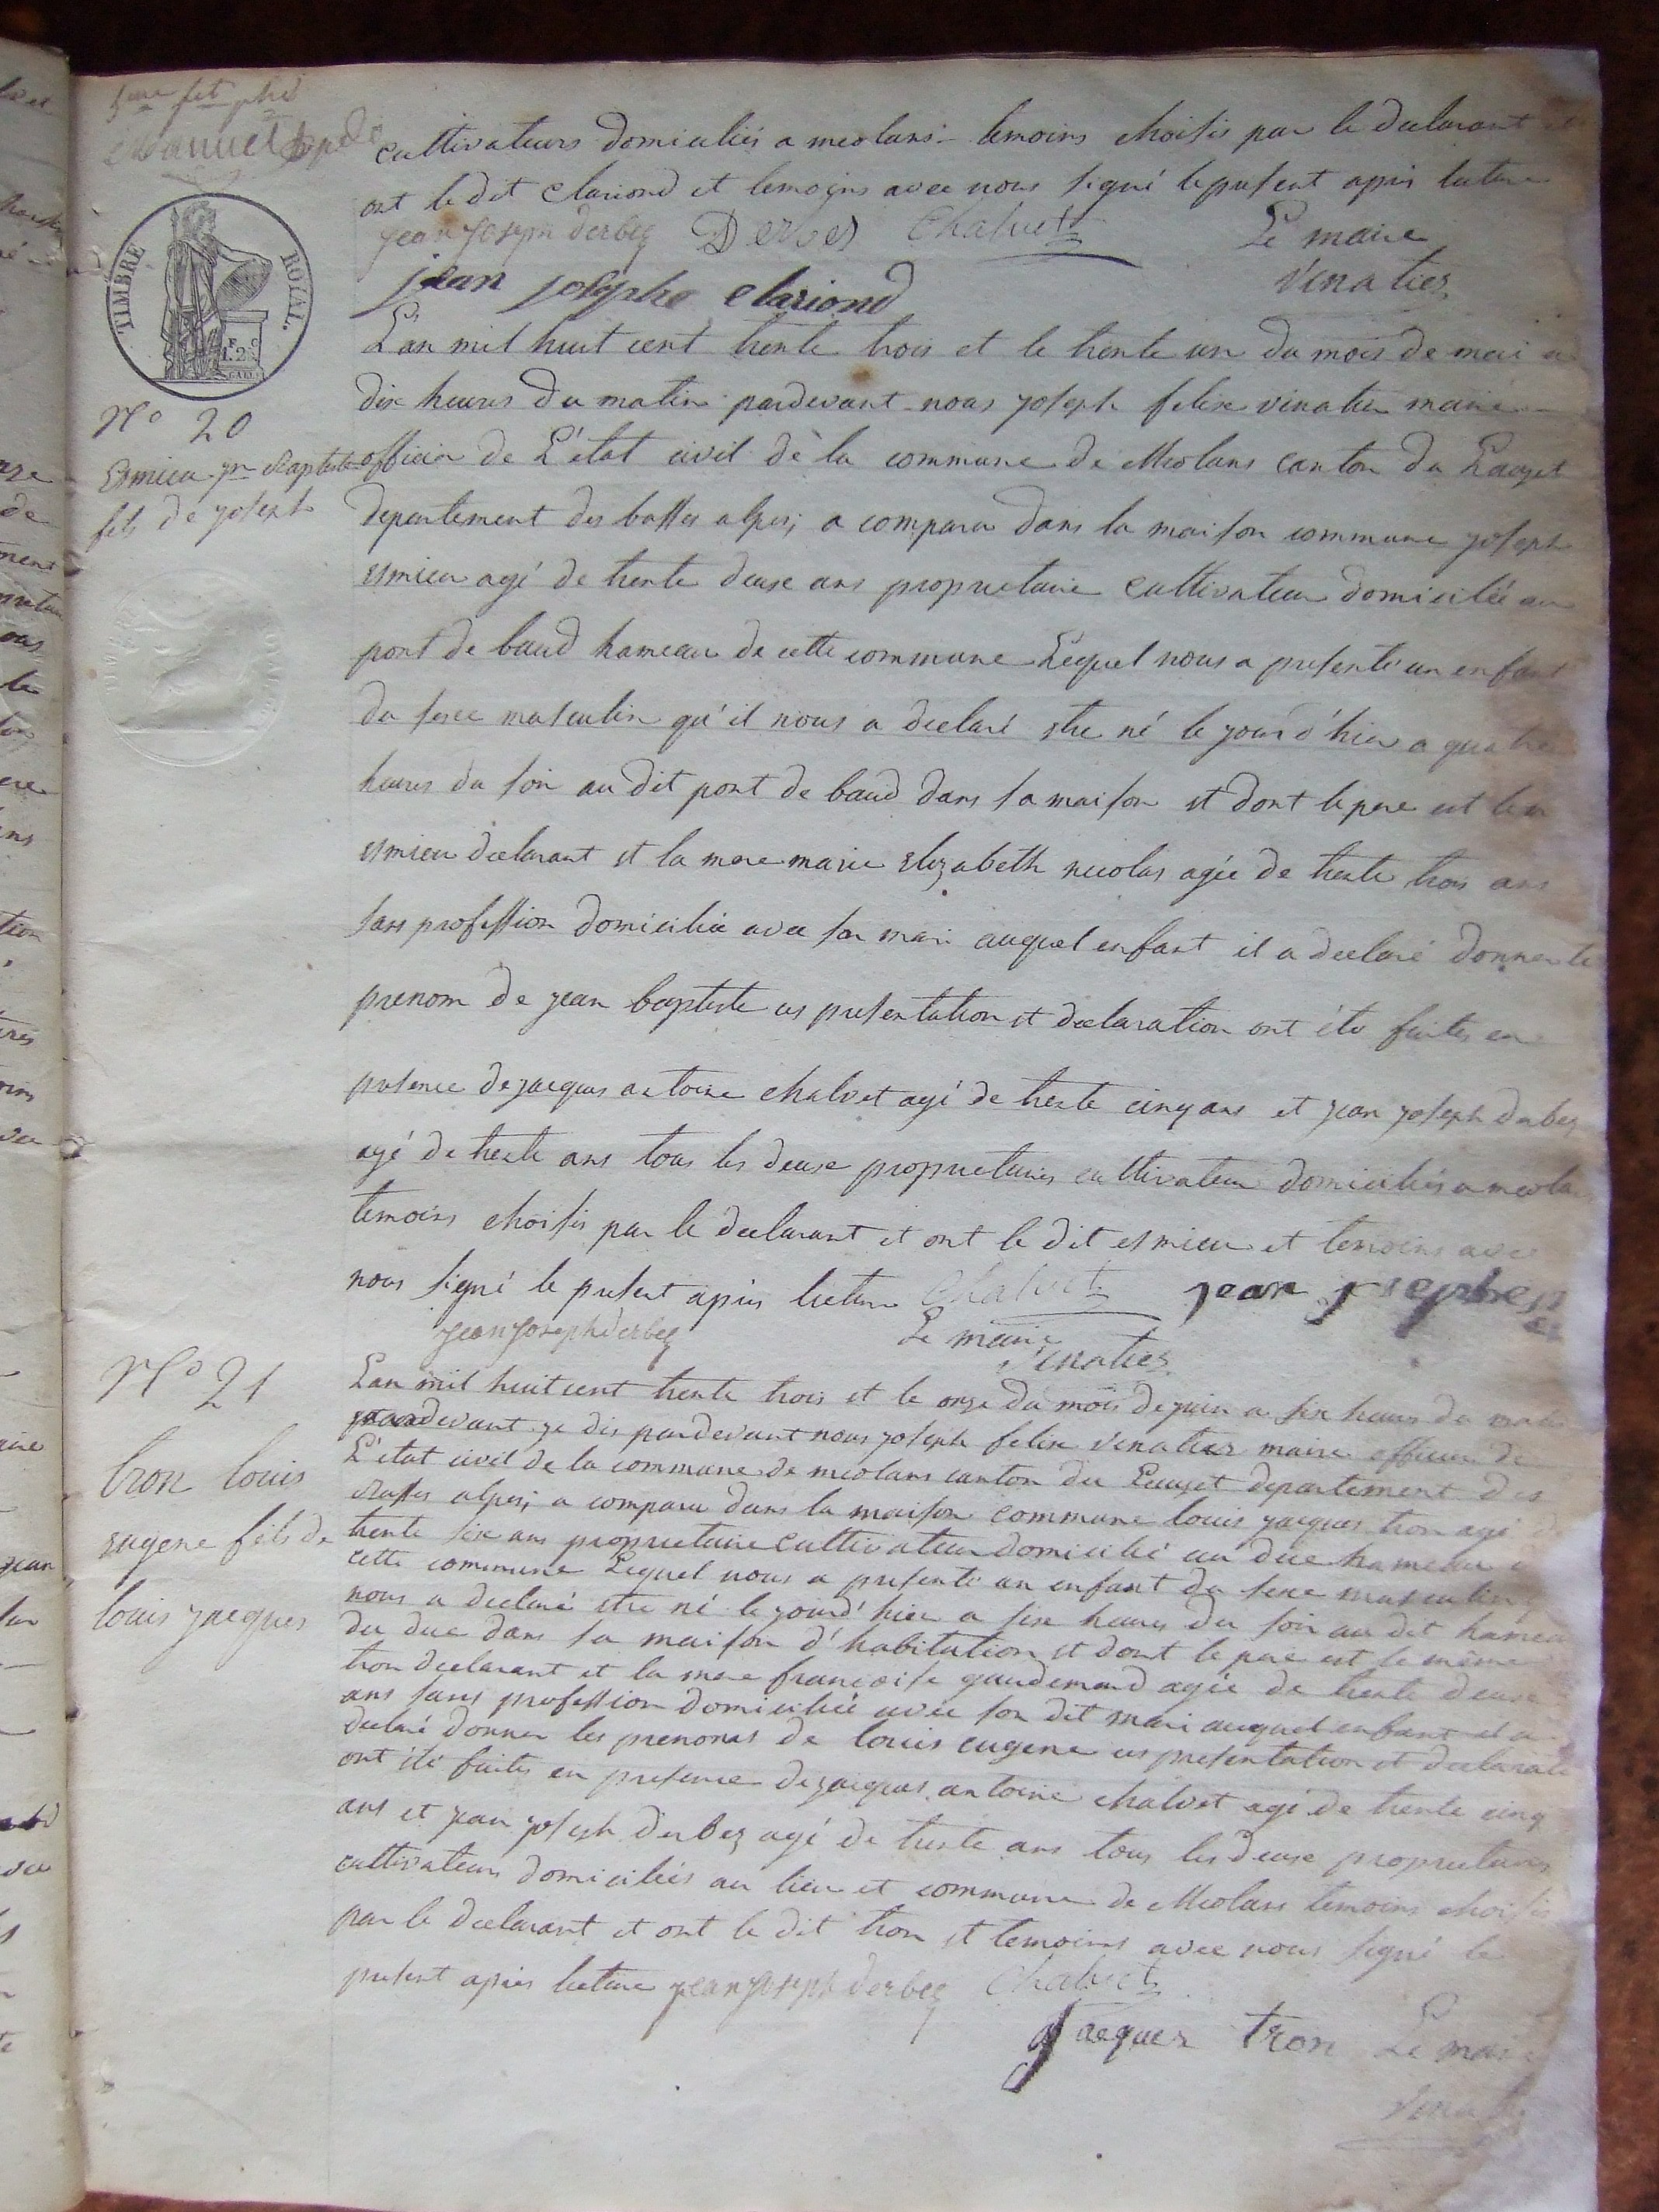 cultivateurs domiciliés a meolans temoins choisis par le declarant et
ont le dit clariond et temoins avec nous signé le present apres lecture
jean joseph derbez Derbez Chalvet Le maire
jean josephe clariond vinatier
TIMBRE ROYAL.
N° 20
Esmieu jn Baptiste
fils de joseph
L'an mil huit cent trente trois et le trente un du mois de mai a
dix heures du matin pardevant nous joseph felix vinatier maire
officier de L'état civil de la commune de Meolans canton du Lauzet
departement des basses alpes, a comparu dans la maison commune joseph
esmieu agé de trente deux ans proprietaire cultivateur domicilié au
pont de baud hameau de cette commune Lequel nous a presenté un enfant
du sexe masculin qu'il nous a declaré etre né le jour d'hier a quatre
heures du soir au dit pont de baud dans sa maison et dont le pere est le
esmieu declarant et la mere marie elizabeth nicolas agée de trente trois ans
sans profession domiciliée avec son mari auquel enfant il a declaré donner le
prenom de jean baptiste ces presentation et declaration ont été faites en
presence de jacques antoine chalvet agé de trente cinq ans et jean joseph derbez
agé de trente ans tous les deux proprietaires cultivateur domiciliés a meolans
temoins choisis par le declarant et ont le dit esmieu et temoins avec
nous signé le present apres lecture Chalvet jean josephe
jean joseph derbez Le maire
vinatier
N° 21
tron louis
eugene fils de
louis jacques
L'an mil huit cent trente trois et le onze du mois de juin a six heures du matin
pardevant je dis pardevant nous joseph felix vinatier maire officier de
L'état civil de la commune de meolans canton du Lauzet departement des
Basses alpes, a comparu dans la maison commune louis jacques tron agé de
trente six ans proprietaire cultivateur domicilié au duc hameau de
cette commune Lequel nous a presenté un enfant du sexe masculin
nous a declaré etre né le jourd'hier a six heures du soir au dit hameau
du duc dans sa maison d'habitation et dont le pere est le même
tron declarant et la mere françoise gaudemard agée de trente deux
ans sans profession domiciliée avec son dit mari auquel enfant il a
declaré donner les prenoms de louis eugene ces presentation et declaration
ont été faites en presence de jacques antoine chalvet agé de trente cinq
ans et jean joseph derbez agé de trente ans tous les deux proprietaires
cultivateurs domiciliés au lieu et commune de Meolans temoins choisis
par le declarant et ont le dit tron et temoins avec nous signé le
present apres lecture jean joseph derbez Chalvet
jacques tron Le maire